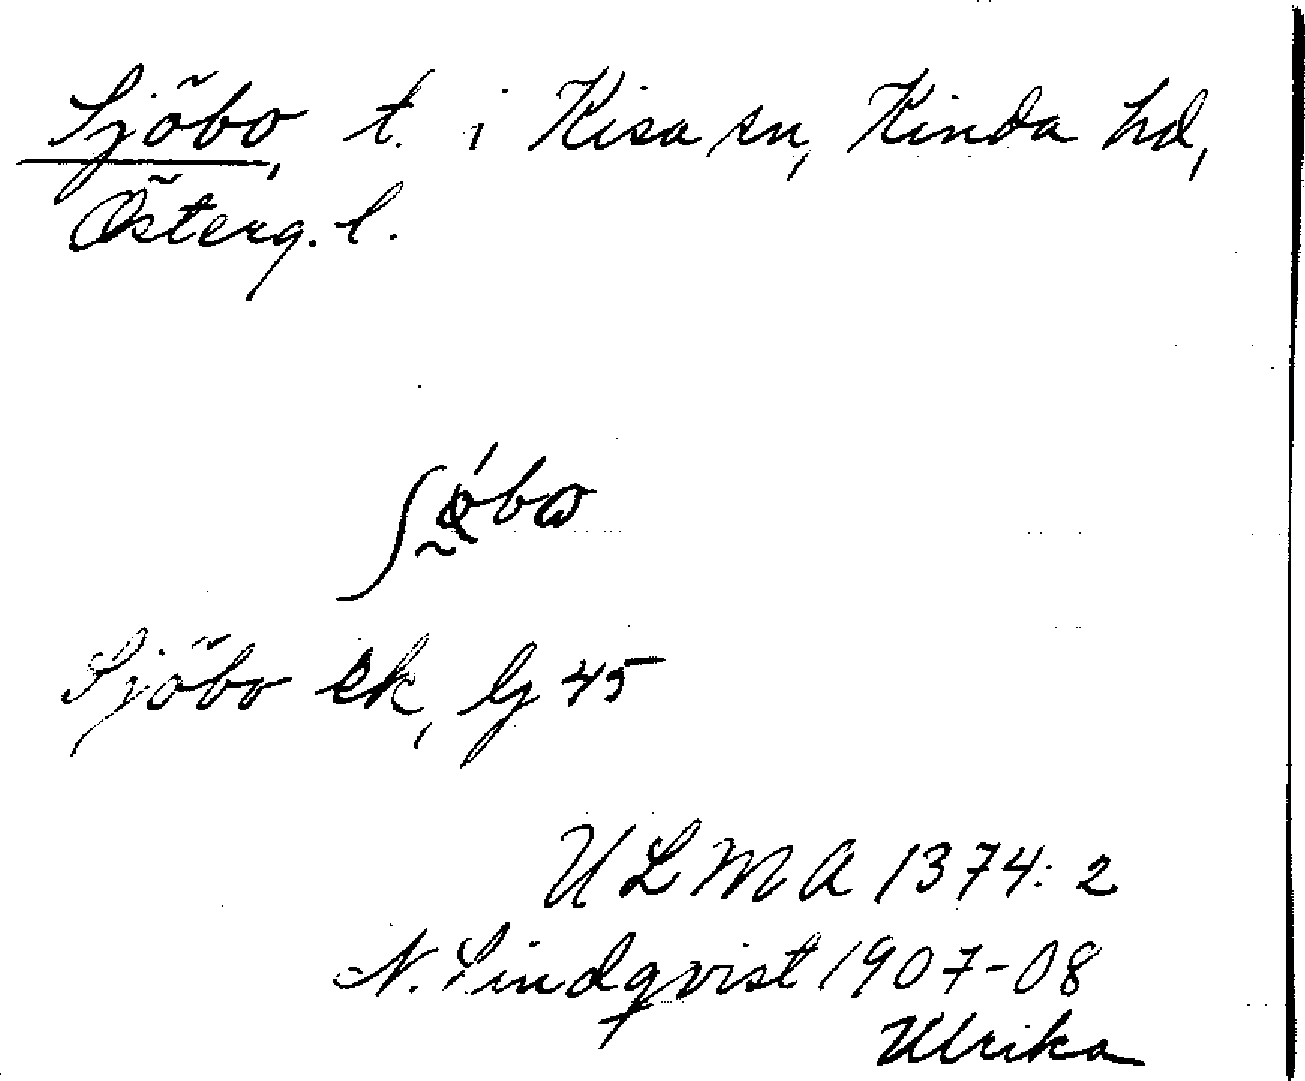 Sjöbo, t. i Kisa sn, Kinda hd,
Österg. l.
Sjöbo ek, Gj 45
ULMA 1374: 2
N. Lindqvist 1907-08
Ulrika